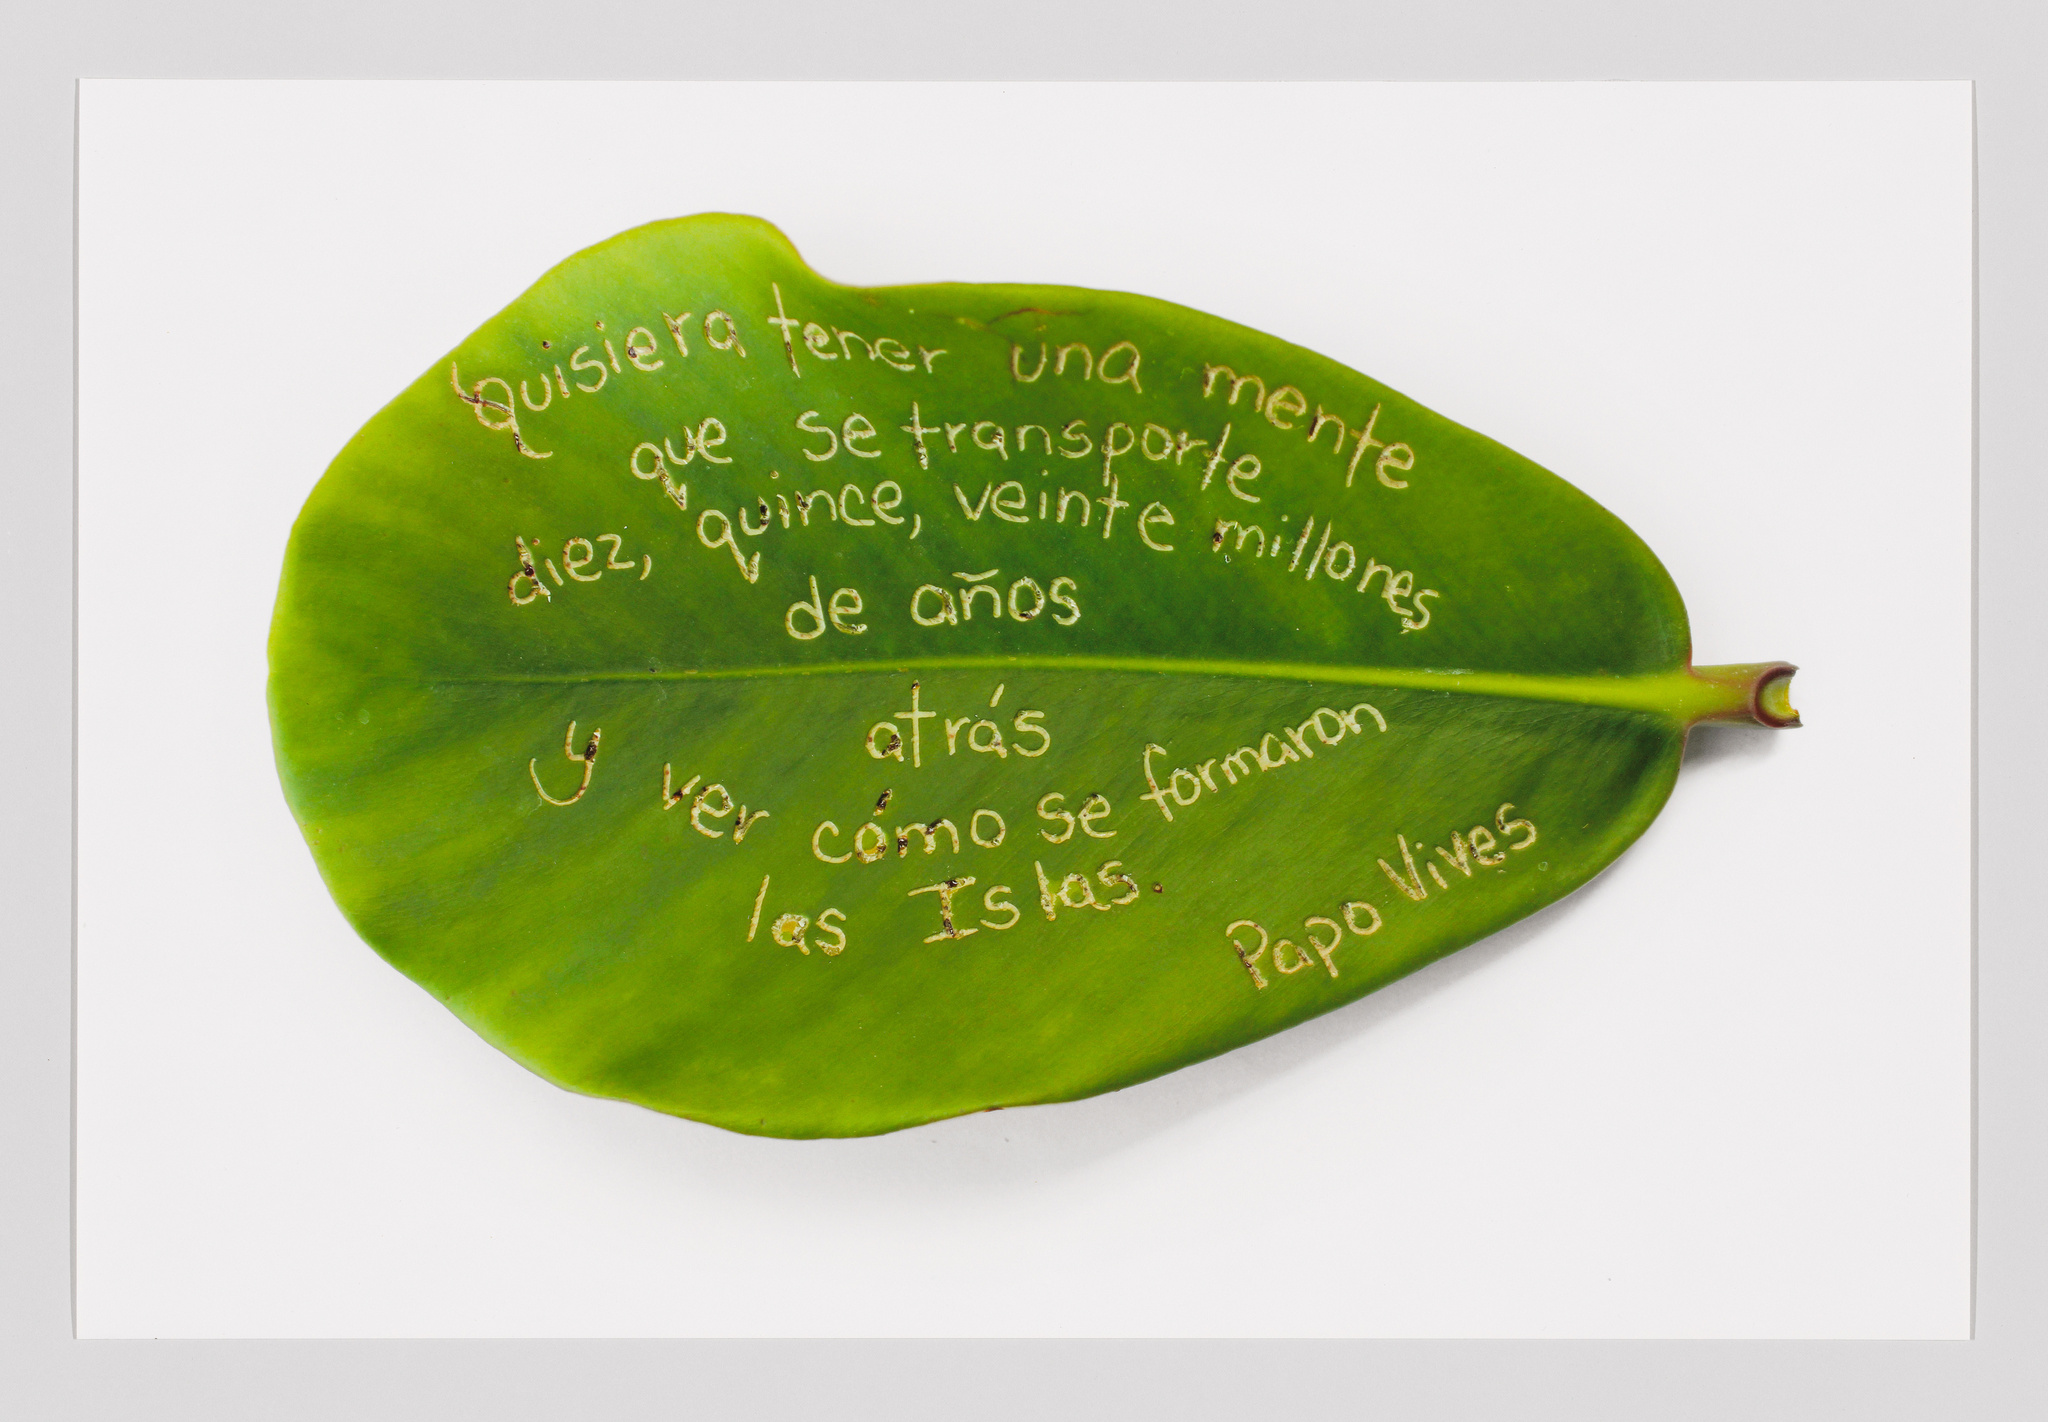 Quisiera tener una mente
que se transporte
diez, quince, veinte millones
de años
atrás
y ver cómo se formaron
las Islas.
Papo Vives